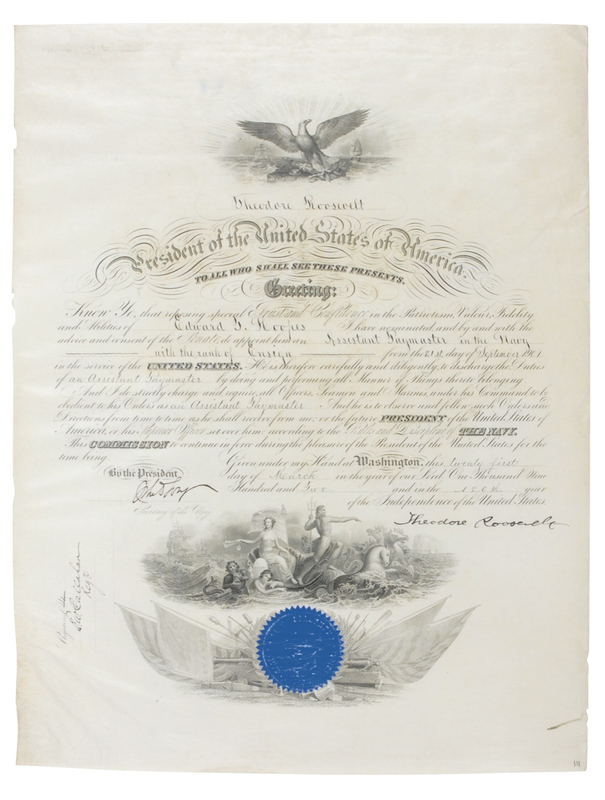 Theodore Roosevelt
President of the United States of America.
TO ALL WHO SHALL SEE THESE PRESENTS,
Greeting:
Know Ye, that reposing special Trust and Confidence in the Patriotism, Valour, Fidelity
and Abilities of Edward T. Hoopes I have nominated and by and with the
advice and consent of the Senate, do appoint him an Assistant Paymaster in the Navy
with the rank of Ensign from the 21st day of September 1901
in the service of the UNITED STATES. He is therefore carefully and diligently to discharge the Duties
of an Assistant Paymaster by doing and performing all Manner of Things thereto belonging
And I do strictly charge and require all Officers, Seamen and Marines under his Command to be
obedient to his Orders as an Assistant Paymaster And he is to observe and follow such Orders and
Directions from time to time as he shall receive from me, or the future PRESIDENT of the United States of
America, or his Superior Officer set over him, according to the Rules and Discipline of THE NAVY.
This COMMISSION to continue in force during the pleasure of the President of the United States for the
time being.
Given under my Hand at Washington, this twenty first
By the President,
day of March in the year of our Lord One Thousand Nine
Hundred and Two and in the 126th year
Secretary of the Navy
of the Independence of the United States.
Theodore Roosevelt